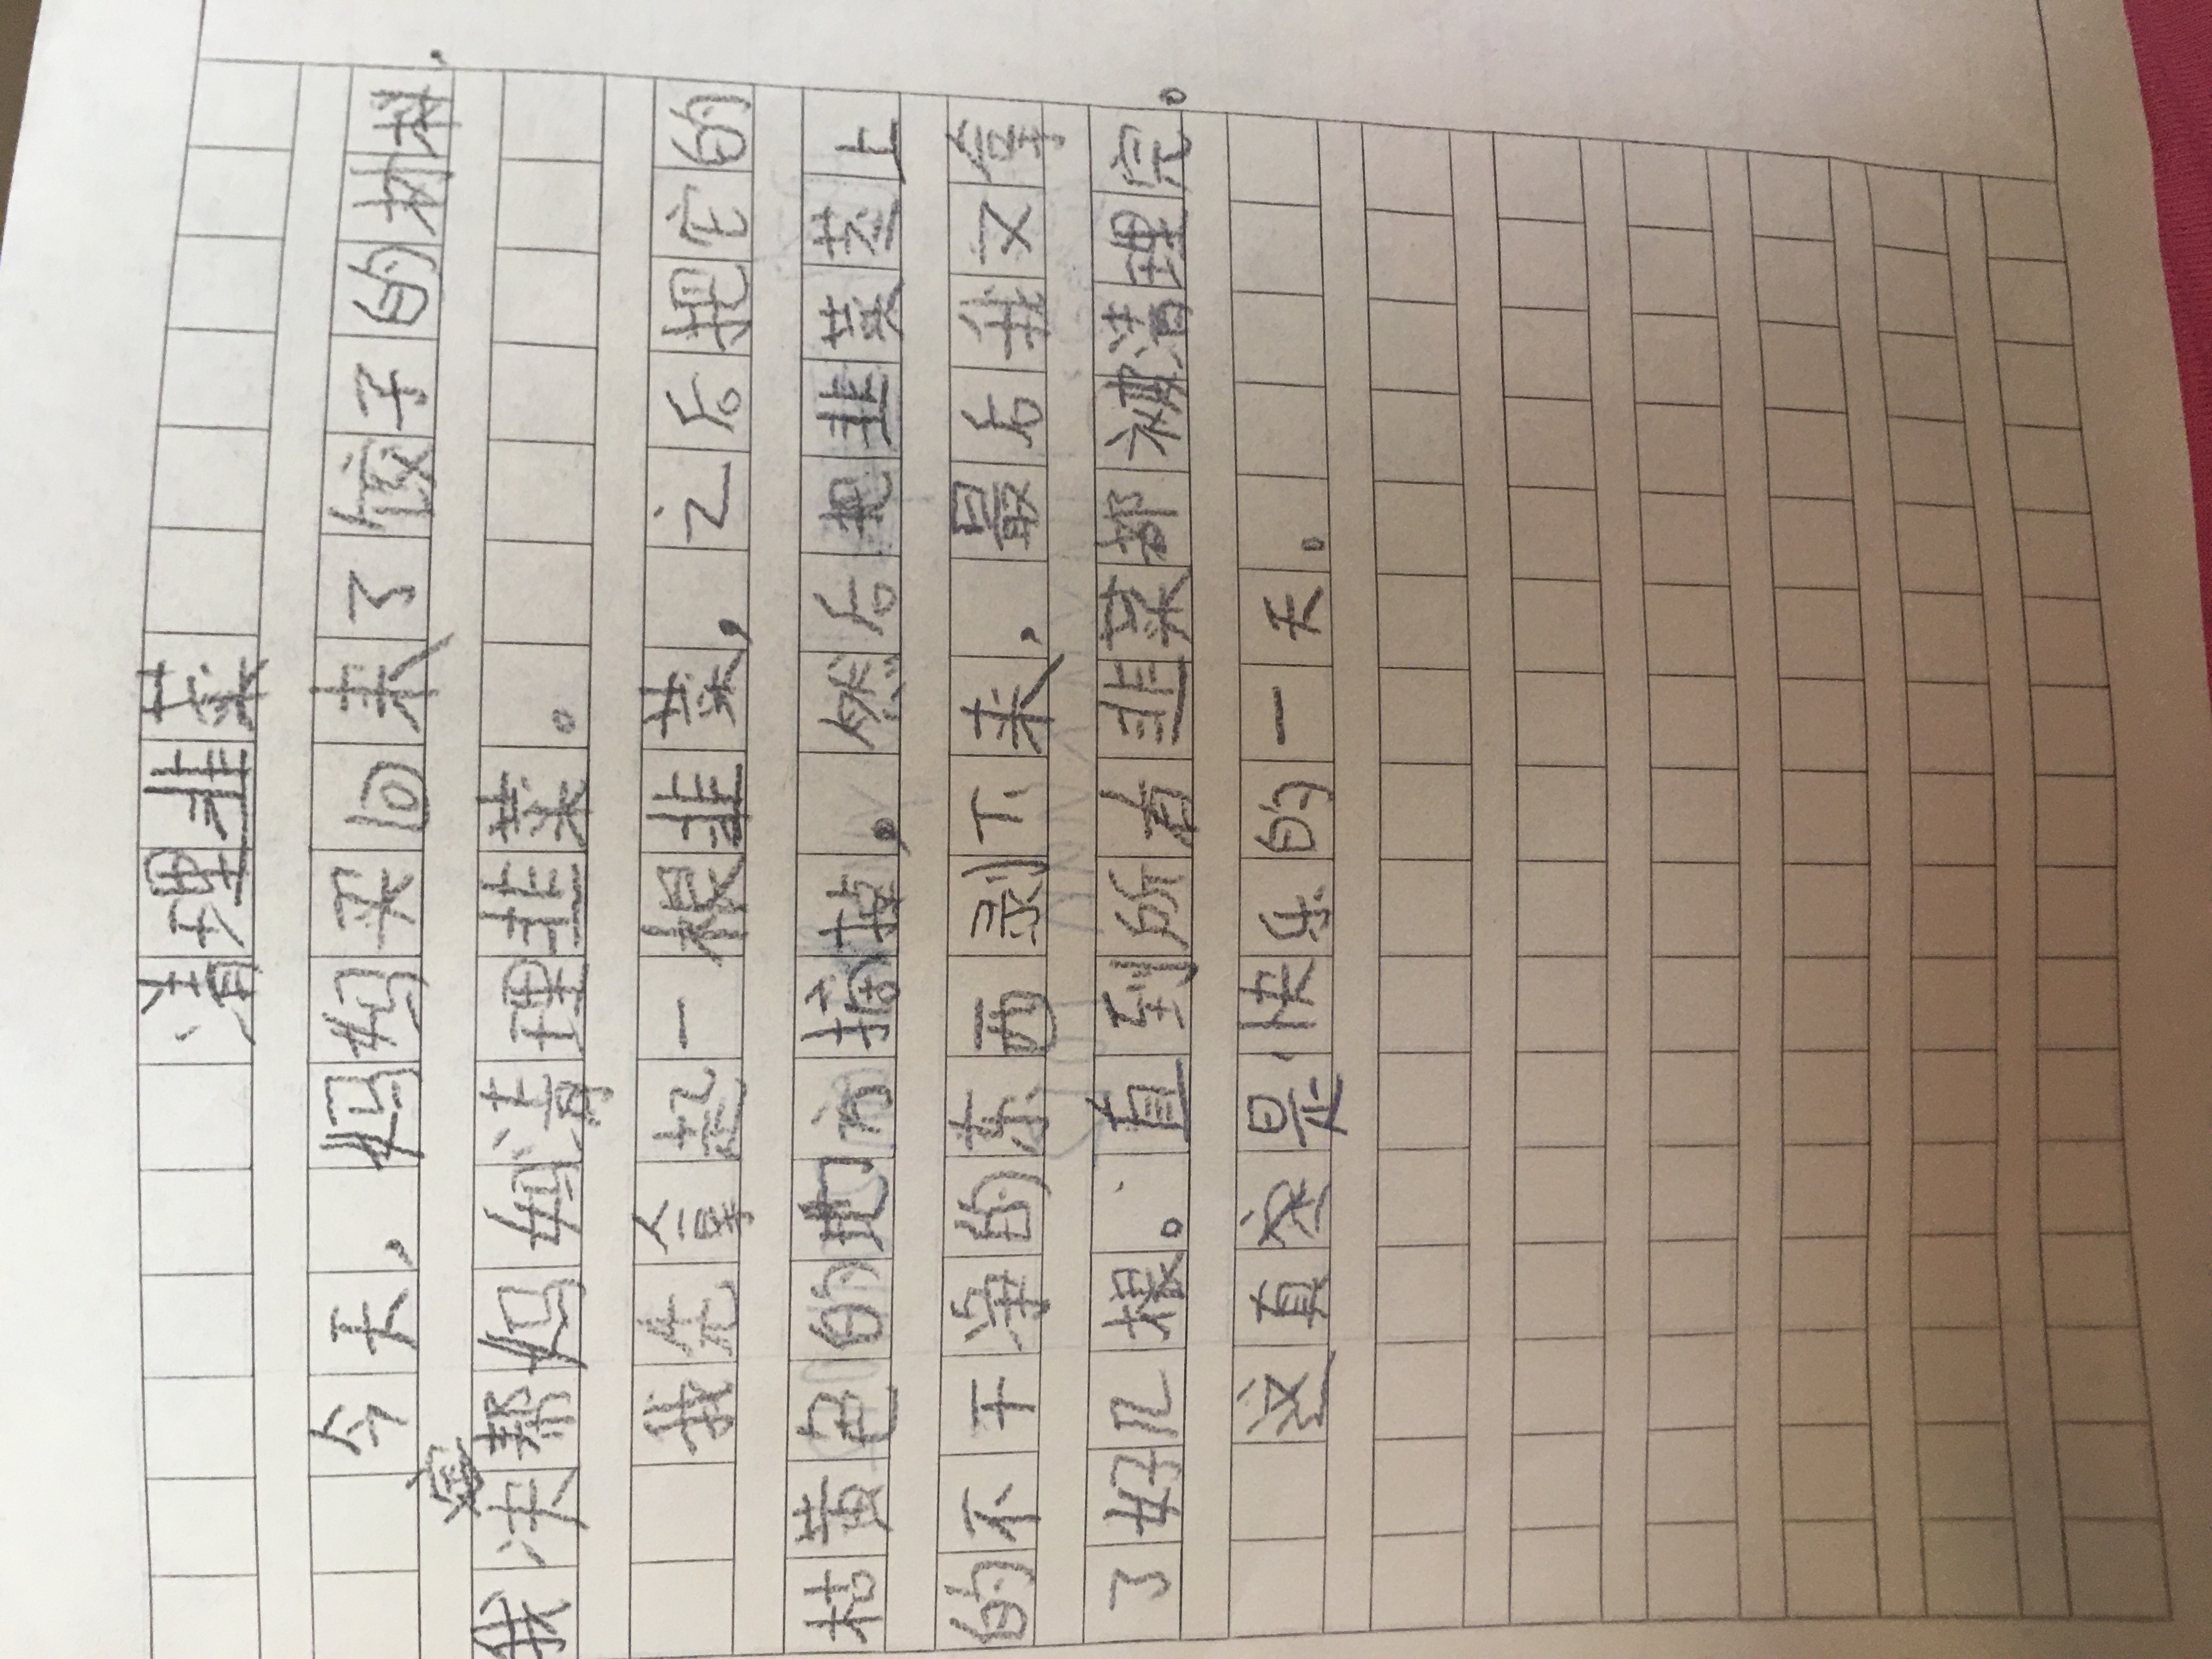 清理韭菜
今天，妈妈买回来了饺子的材料，
我决定帮妈妈清理韭菜。
我先拿起一根韭菜，之后把它的
枯黄色的地方摘掉，然后把韭菜茎上
的不干净的东西剥下来，最后我又拿
了好几根。直到所有韭菜都被清理完。
这真是快乐的一天。